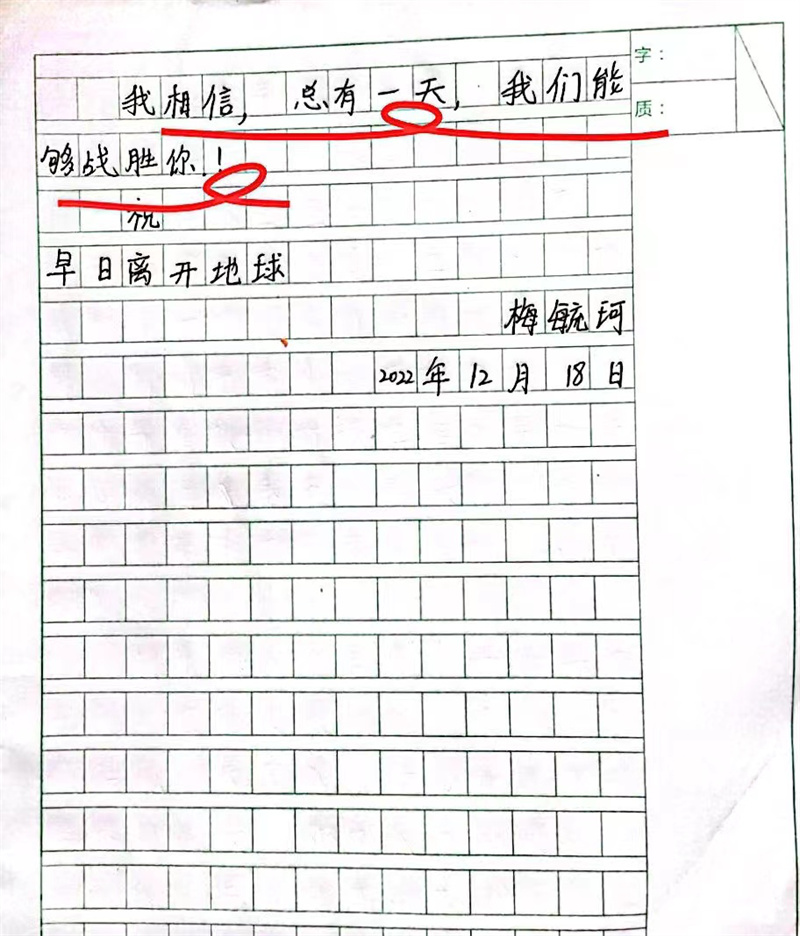 字：
我相信，总有一天，我们能
质：
够战胜你！
祝
早日离开地球
梅毓珂
2022年12月18日